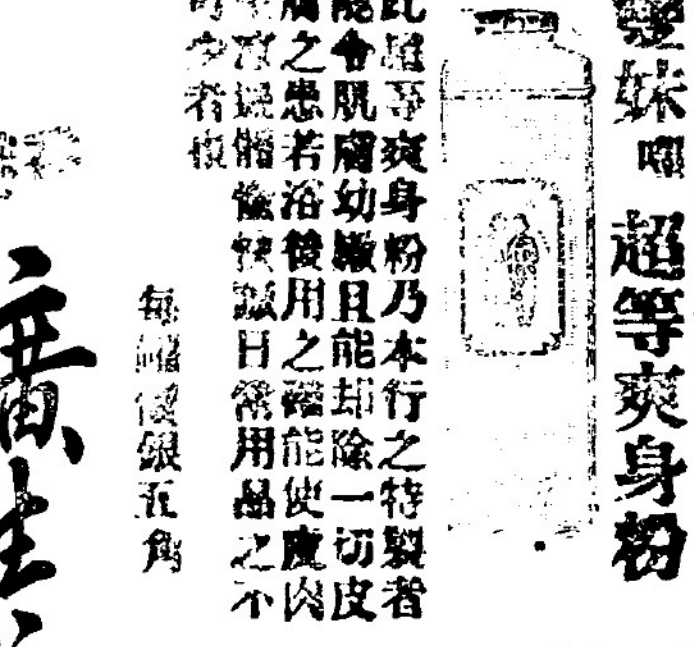 雙妹嚜 超等爽身粉
此超等爽身粉乃本行之特製者
能令肌膚幼嫩且能却除一切皮
膚之患若浴後用之能使膚肉
體愉快誠日常用品之不
可少者
每罇價銀五角
廣生